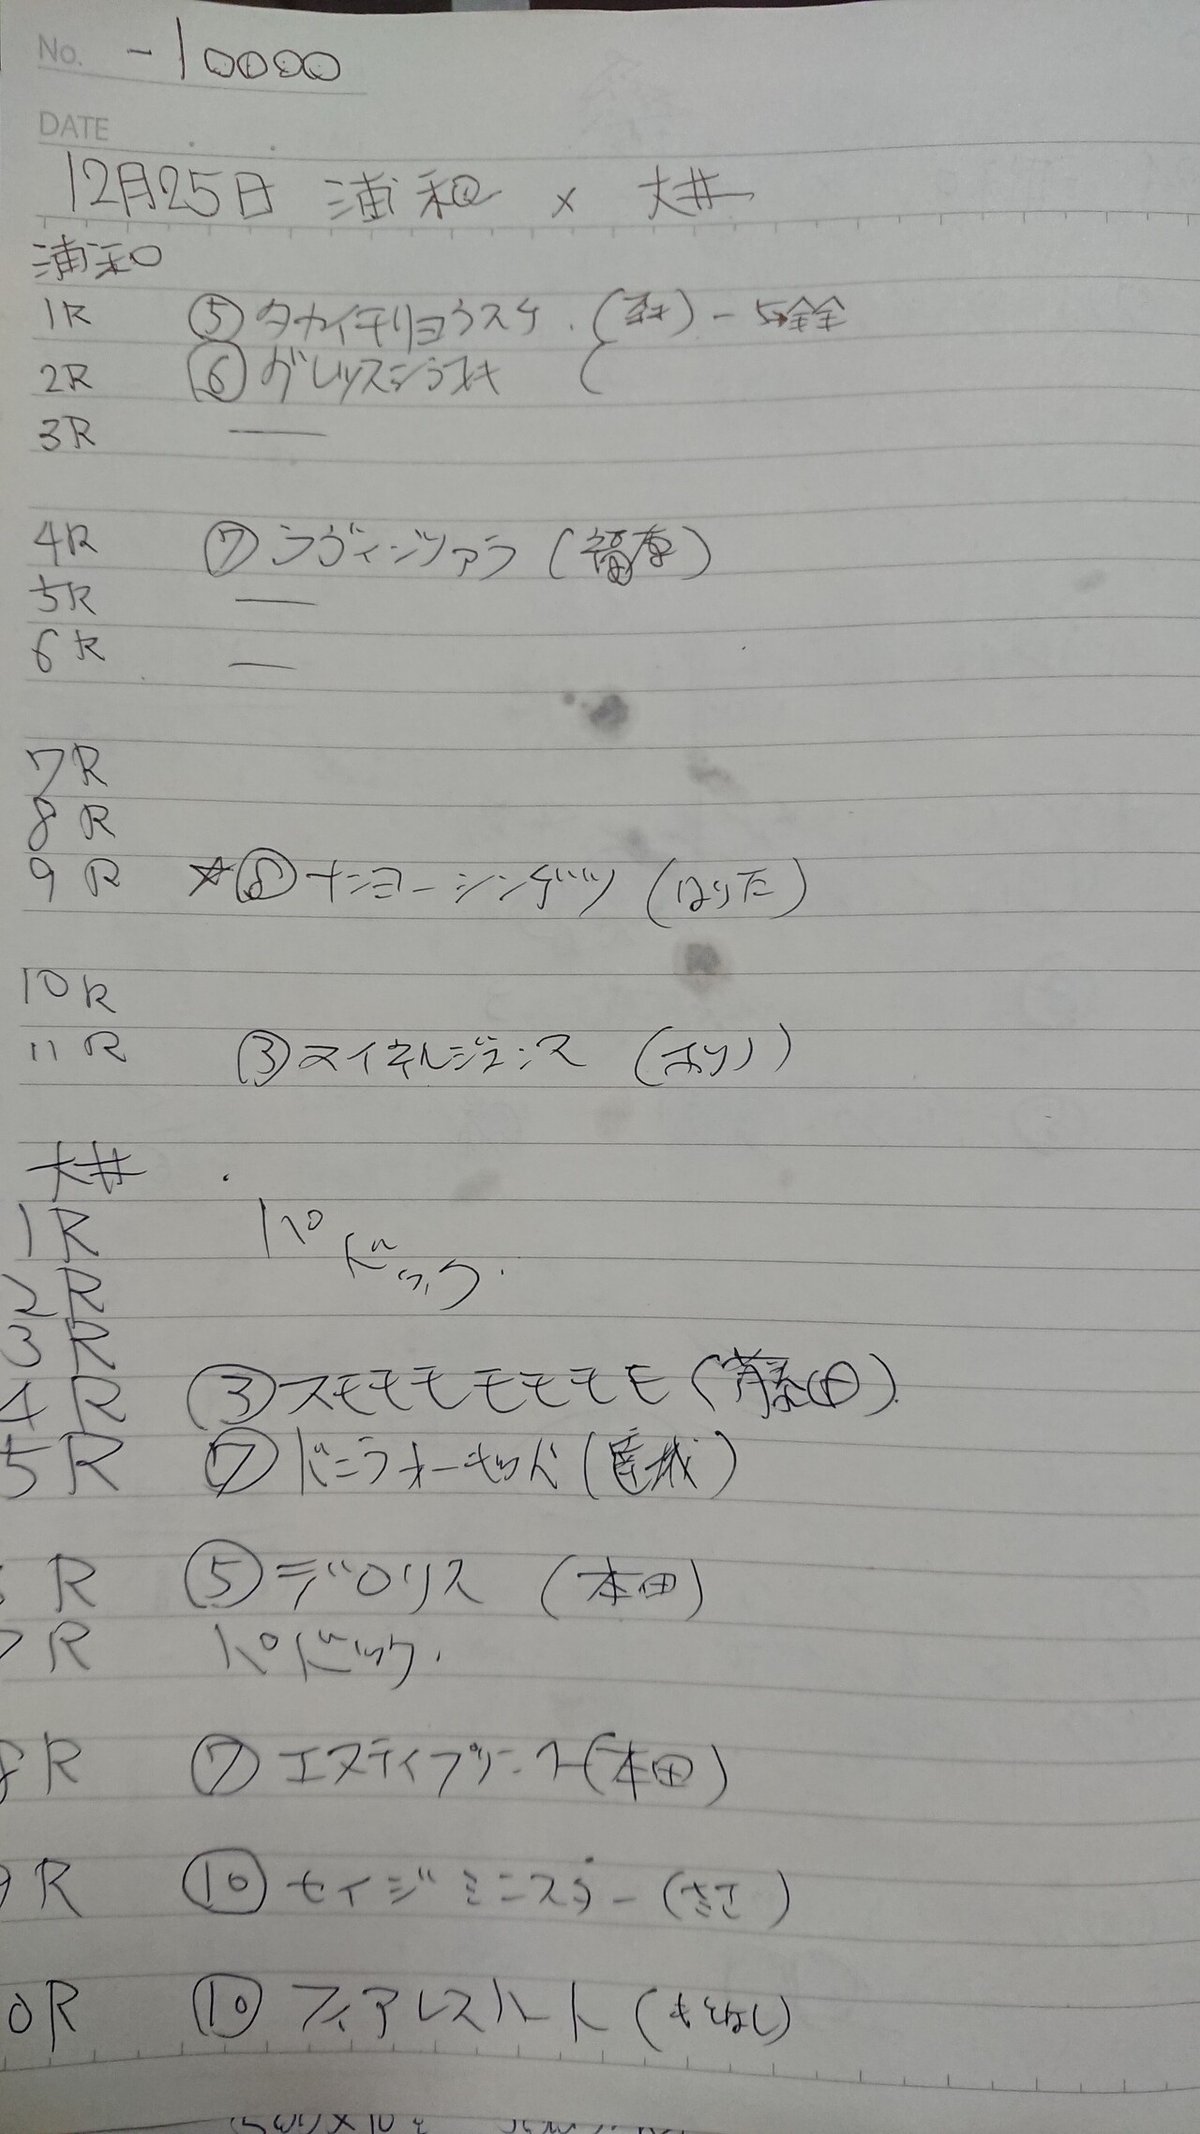 No. -10000
DATE
12月25日 浦和 × 大井
浦和
1R ⑤タカイチリョウスケ.
2R ⑥グレッスシラユキ (
3R —
4R ⑦ラヴィジツァラ (福原)
5R —
6R —
7R
8R
9R ☆⑧ナンヨーシンゲツ (はりた)
10R
11R ③マイネルジェンス
大井
1R パドック.
2R
3R
4R ③スモモモモモモモ (藤田)
5R ⑦ドニラオーキッド
R ⑤デロリス (本田)
R パドック.
8R ⑦エヌティプリント (本田)
9R ⑩セイジミニスター
0R ⑩フィアレスハート